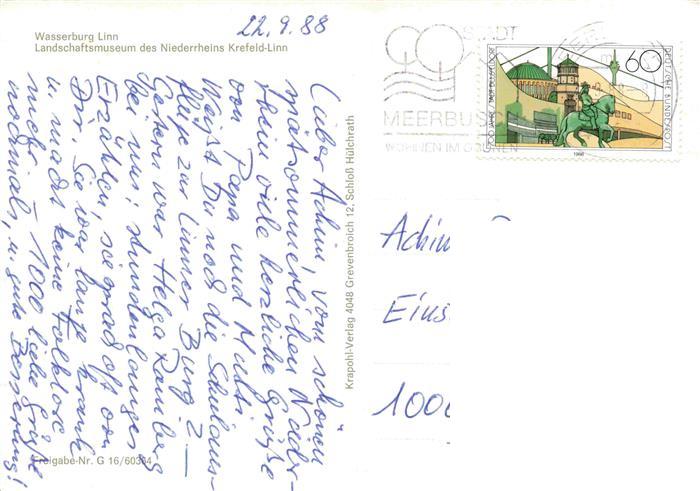 Wasserburg Linn
Landschaftsmuseum des Niederrheins Krefeld-Linn
22.9.88
Lieber Achim, vom schönen
spätsommerlichen Nieder-
rhein viele herzliche Grüße
von Papa und Mutti
Weißt Du noch die Schulaus-
flüge zur Linner Burg? —
Gestern war Helga Ramberg
bei uns: stundenlanges
Erzählen, sie grad oft von
Dir. Sie war lange krank
u. macht keine Folklore
mehr – 1000 liebe Grüße
nochmals, u. gute Besserung!
Freigabe-Nr. G 16/60304
Krapohl-Verlag 4048 Grevenbroich 12, Schloß Hülchrath
STADT
MEERBUSCH
WOHNEN IM GRÜNEN
60
DEUTSCHE BUNDESPOST
700 JAHRE STADT DÜSSELDORF
1988
Achim
Eins
1000